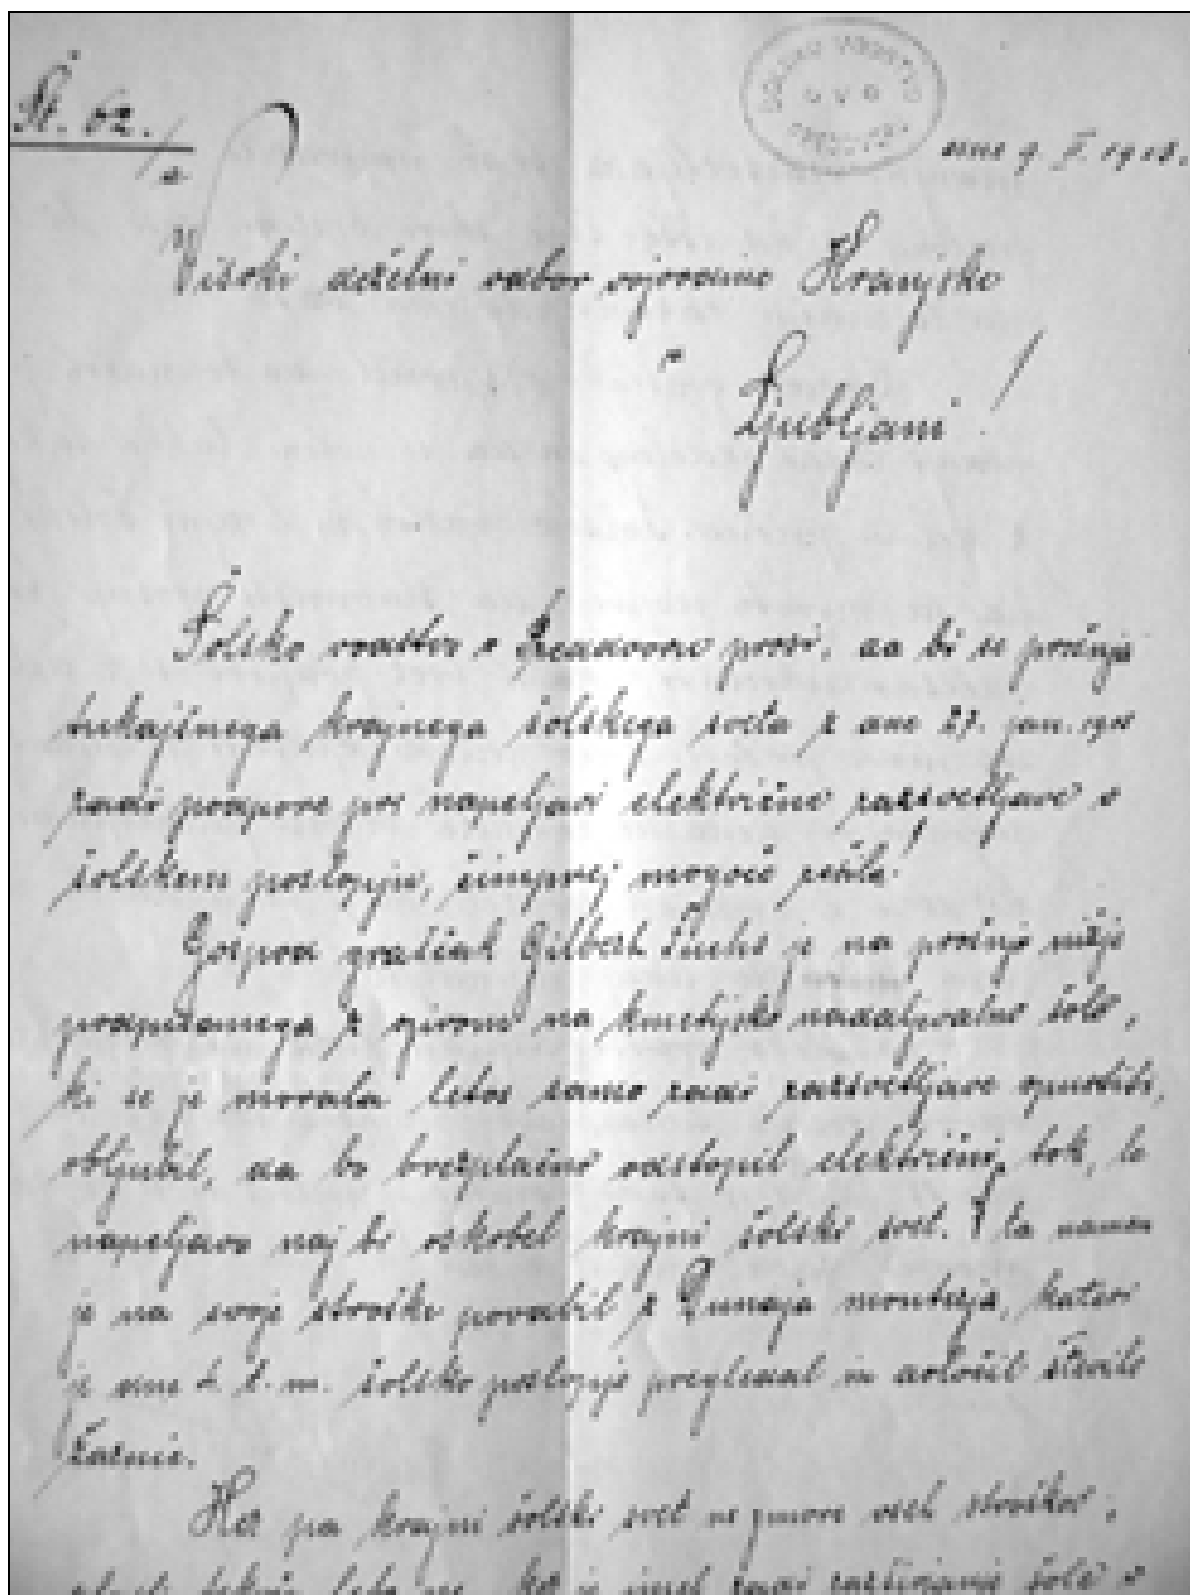 Št. 62.
ŠOLSKO VODSTVO
dne 9. II. 1908.
Visoki deželni odbor vojvodine Kranjske
v Ljubljani!
Šolsko vodstvo v Predvoru prosi, da bi se prošnja
tukajšnega krajnega šolskega sveta z dne 27. jan. 1908
radi podpore pri napeljavi električne razsvetljave v
šolskem poslopju, čimprej mogoče rešila!
Gospod graščak Gilbert Fuchs je na prošnjo nižje
podpisanega z ozirom na kmetijsko nadaljevalno šolo,
ki se je morala letos samo radi razsvetljave opustiti,
obljubil, da bo brezplačno odstopil električni tok, le
napeljavo naj bi oskrbel krajni šolski svet. V ta namen
je na svoje stroške povabil z Dunaja monterja, kateri
je dne t. m. šolsko poslopje pregledal in določil število
žarnic.
Ker pa krajni šolski svet ne zmore vseh stroškov,
leto ker je imel radi razširjanja šole v